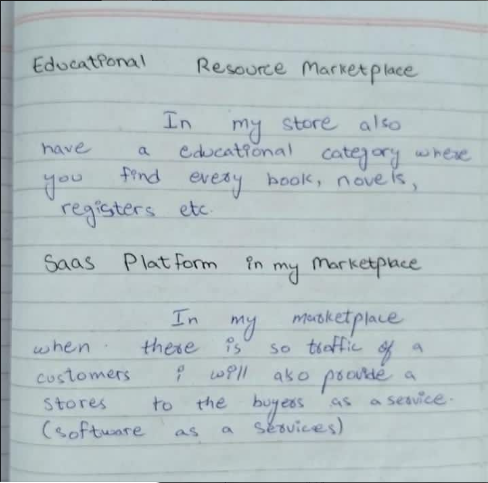 Educational Resource Marketplace
In my store also
have a educational category where
you find every book, novels,
registers etc.
Saas Platform in my Marketplace
In my marketplace
when there is so traffic of a
customers i will also provide a
stores to the buyers as a service.
(software as a services)